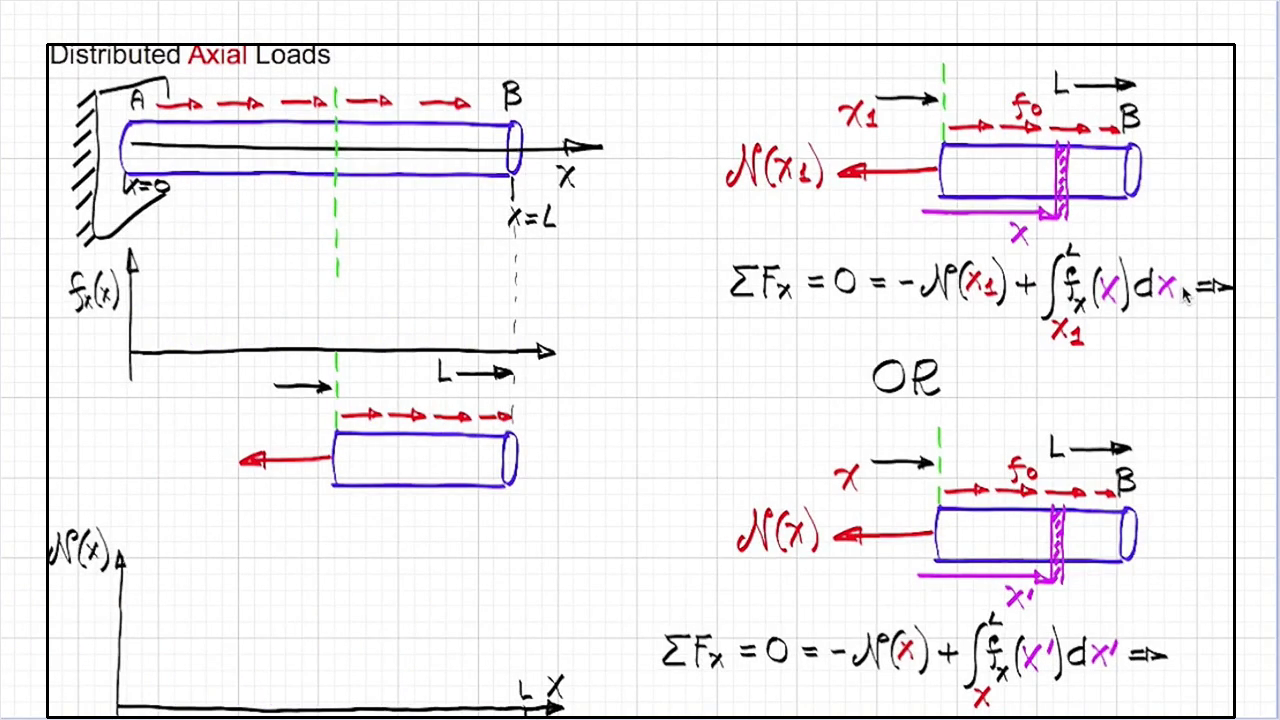 Distributed Axial Loads
A
B
x=0
x
x=L
fx(x)
L
N(x)
L x
L
x1
f0
B
N(x1)
x
ΣFx = 0 = -N(x1) + ∫x1^L fx(x)dx, ⇒
OR
L
x
f0
B
N(x)
x'
ΣFx = 0 = -N(x) + ∫x^L fx(x')dx' ⇒